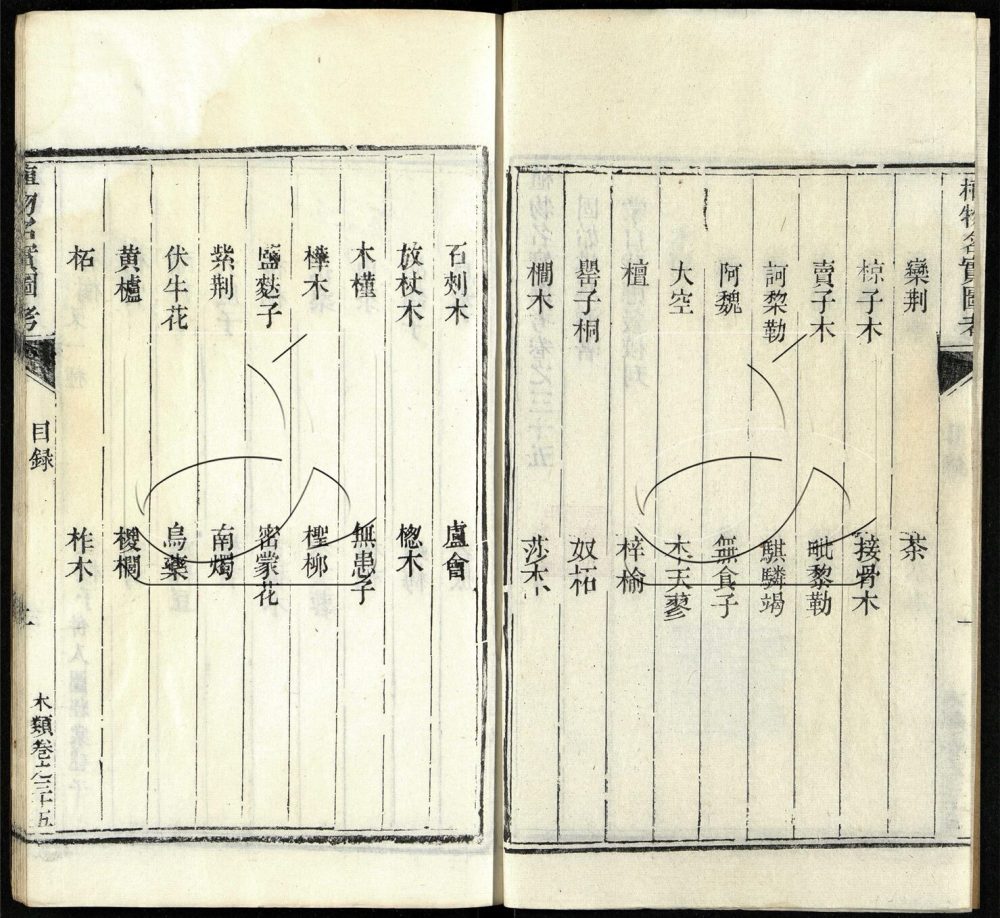 植物名實圖考 一
欒荆 茶
椋子木 接骨木
賣子木 毗黎勒
訶棃勒 騏驎竭
阿魏 無食子
大空 木天蓼
檀 梓榆
罌子桐 奴柘
櫚木 莎木
石刺木 盧會
放杖木 楤木
木槿 無患子
樺木 檉柳
鹽麩子 密蒙花
紫荆 南燭
伏牛花 烏藥
黃櫨 椶櫚
柘 柞木
植物名實圖考 目録 一 木類卷之三十五